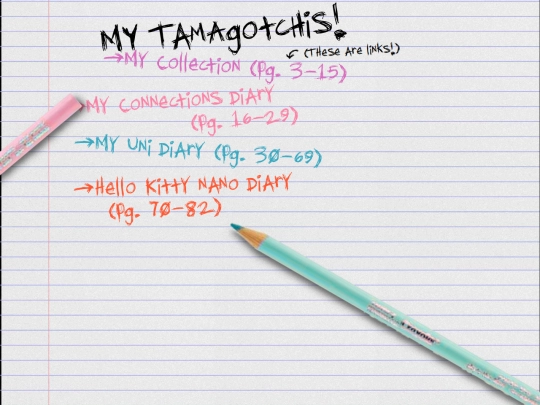 MY TAMAGOTCHIS!
(THese Are LINKS!)
→MY Collection (Pg. 3-15)
MY CONNECTIONS DIARY
(Pg. 16-29)
→MY UNI DIARY (Pg. 30-69)
→Hello KITTY NANO DIARY
(Pg. 70-82)